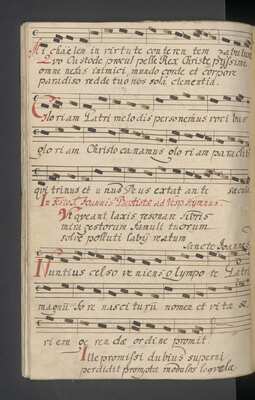 Mi chaë lem in virtute conteren tem Zabulum
Quo Custode procul pelle Rex Christe pyssime
omne nefas inimici mundo corde et corpore
paradiso redde tuo nos solâ clementiâ.
Gloriam Patri melodis personemus vocibus
gloriam Christo canamus gloriam paracliti
qui trinus et unus Deus extat ante sæcula
In Festo S. Joannis Baptistæ ad Vesp. Hymnus.
Ut queant laxis resonare fibris
mira gestorum famuli tuorum
solve polluti labij reatum
Sancte Joannes
Nuntius celso veniens Olympo te Patri
magnum fore nasciturum nomen et vitæ se
riem gerendæ ordine promit.
Ille promissi dubius superni
perdidit promptæ modulos loquelæ